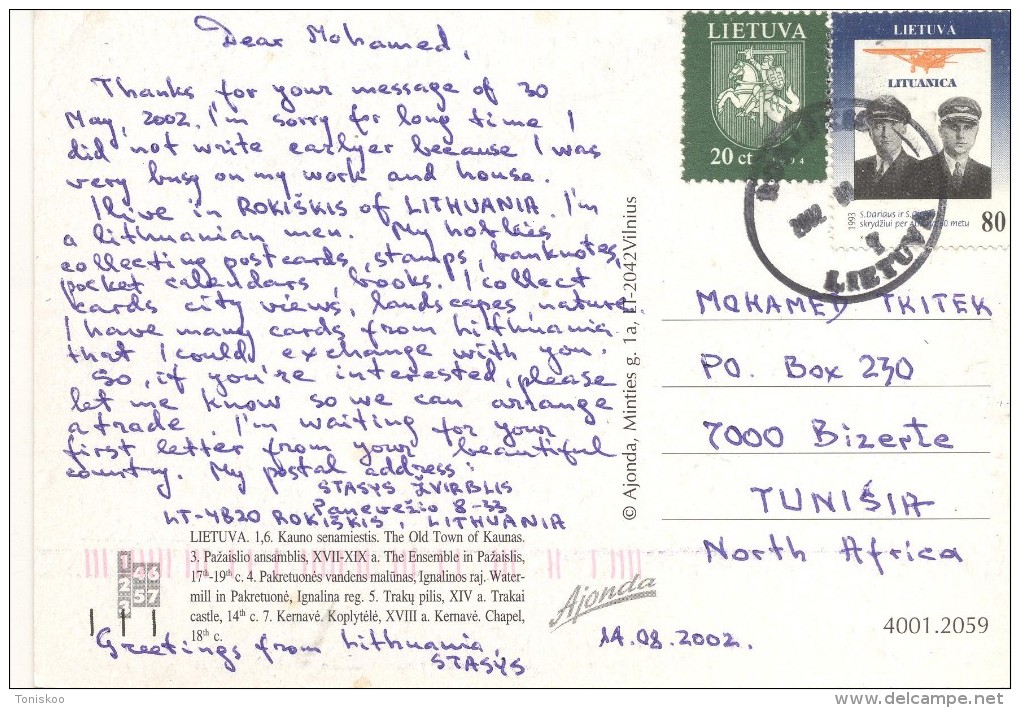 Dear Mohamed,
Thanks for your message of 30
May, 2002. I'm sorry for long time I
did not write earlyer because I was
very busy on my work and house.
I live in ROKIŠKIS of LITHUANIA. I'm
a lithuanian men. My hobbies
collecting postcards, stamps, banknotes,
pocket calendars, books. I collect
cards city views, landscapes, nature.
I have many cards from Lithuania
that I could exchange with you.
So, if you're interested, please
let me know so we can arrange
a trade. I'm waiting for your
first letter from your beautiful
country. My postal address:
STASYS ŽVIRBLIS
Panevėžio 8-33
LT-4820 ROKIŠKIS, LITHUANIA
LIETUVA. 1,6. Kauno senamiestis. The Old Town of Kaunas.
3. Pažaislio ansamblis, XVII-XIX a. The Ensemble in Pažaislis,
17th-19th c. 4. Pakretuonės vandens malūnas, Ignalinos raj. Water-
mill in Pakretuonė, Ignalina reg. 5. Trakų pilis, XIV a. Trakai
castle, 14th c. 7. Kernavė. Koplytėlė, XVIII a. Kernavė. Chapel,
18th c.
Greetings from Lithuania,
STASYS
14.08.2002.
Ajonda
© Ajonda, Minties g. 1a, LT-2042 Vilnius
LIETUVA
20 ct
LIETUVA
LITUANICA
1993
S.Dariaus ir S.
skrydžiui per
metu
80
2002
LIETUVA
MOHAMED TKITEK
PO. Box 230
7000 Bizerte
TUNIŠIA
North Africa
4001.2059
Toniskoo
delcampe.net